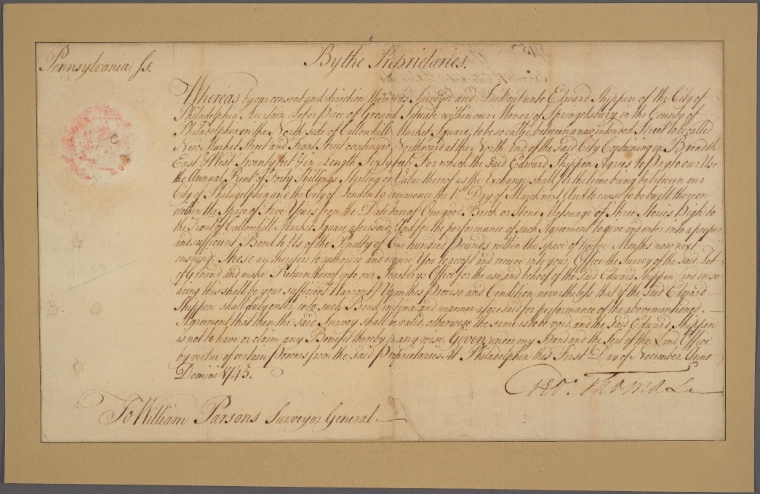 Pennsylvania Ss.
By the Proprietaries.
Whereas by our consent and direction there was Surveyed and Laid out unto Edward Shippen of the City of
Philadelphia a certain Lot or Piece of Ground Situate within our Manor of Springetsbury in the County of
Philadelphia on the North side of Callowhill Market Square, to be so called, between a new intended Street to be called
New Market Street and Front Street continued Northward at the North End of the said City Containing in Breadth
East & West Twenty feet & in Length Sixty feet. For which the said Edward Shippen Agrees to Pay to our Use
the Annual Rent of Forty Shillings Sterling or Value thereof as the Exchange shall for the time being be between our
City of Philadelphia and the City of London to commence the 1st Day of March next, & to cause to be built thereon
within the Space of Five Years from the Date hereof One good Brick or Stone Messuage of Three Stories High to
the Front of Callowhill Market Square aforesaid; And for the performance of such Agreement to give and enter into a proper
and sufficient Bond to Us of the Penalty of One hundred Pounds within the space of Twelve Months now next
ensuing. These are therefore to authorize and require You to accept and receive into your Office the Survey of the said Lot
of Ground and make Return thereof into our Secretary's Office for the use and behoof of the said Edward Shippen and in so
doing this shall be your sufficient Warrant Upon this Proviso and Condition nevertheless that if the said Edward
Shippen shall duly enter into such Bond in form and manner aforesaid for performance of the abovementioned
Agreement, that then the said Survey shall be valid, otherwise the same is to be void, and the said Edward Shippen
is not to have or claim any Benefit thereby in any wise. Given under my Hand and the Seal of the Land Office
by virtue of certain Powers from the said Proprietaries. At Philadelphia this First Day of November Anno
Domini 1745.
Geo: Thomas
To William Parsons Surveyor General